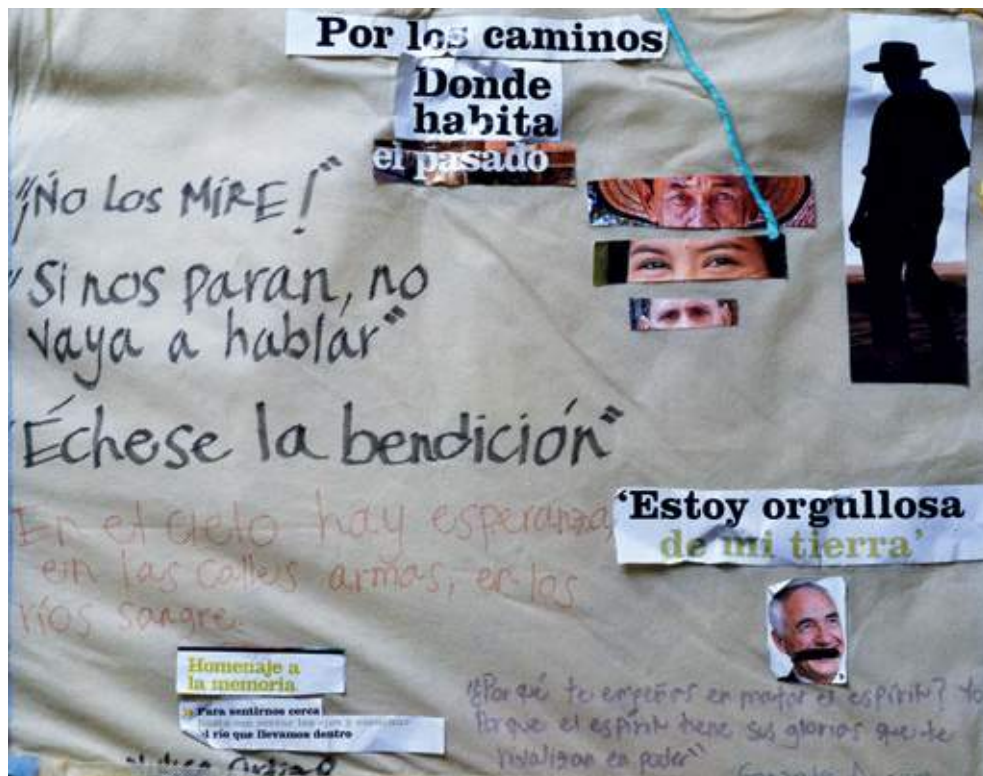 Por los caminos
Donde
habita
el pasado
"¡No Los MIRE!"
"Si nos paran, no
vaya a hablar"
"Échese la bendición"
En el cielo hay esperanza,
en las calles armas, en los
ríos sangre.
'Estoy orgullosa
de mi tierra'
Homenaje a
la memoria
Para sentirnos cerca
el río que llevamos dentro
"¿Por qué te empeñas en matar el espíritu? Yo
Porque el espíritu tiene sus glorias que te
rivalizan en poder"